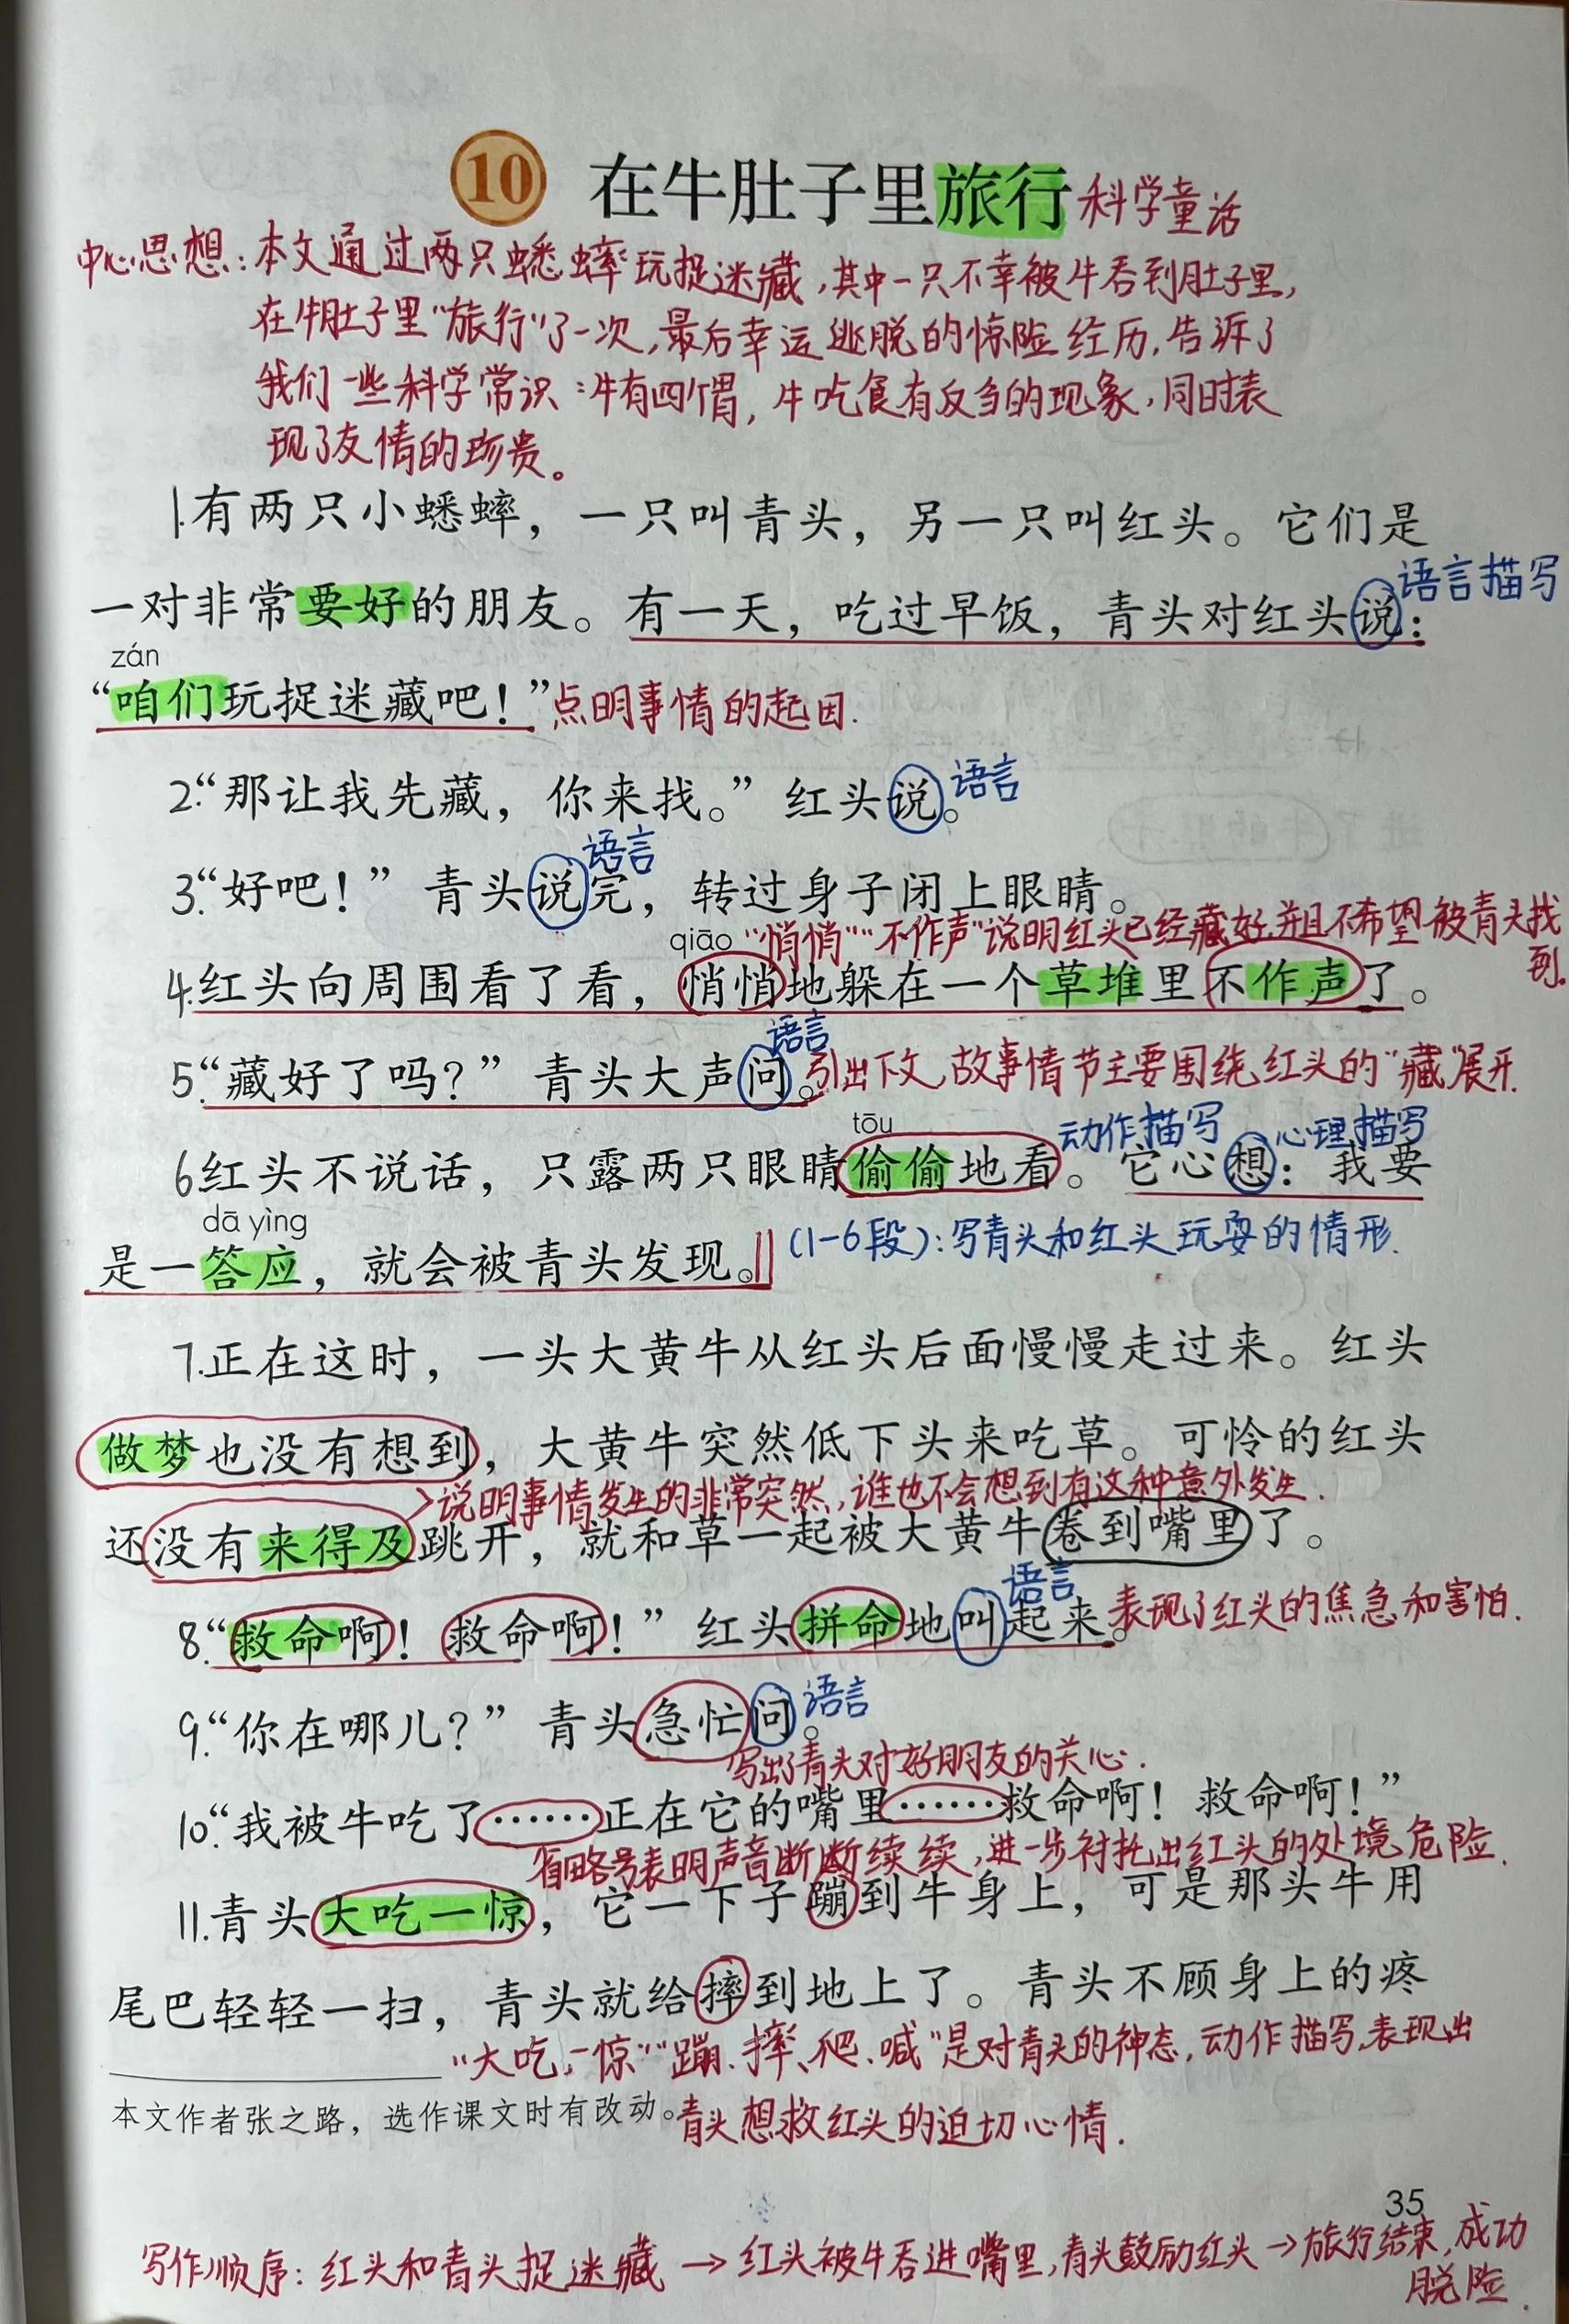 10 在牛肚子里旅行 科学童话
中心思想：本文通过两只蟋蟀玩捉迷藏，其中一只不幸被牛吞到肚子里，
在牛肚子里“旅行”了一次，最后幸运逃脱的惊险经历，告诉了
我们一些科学常识：牛有四个胃，牛吃食有反刍的现象，同时表
现了友情的珍贵。
1.有两只小蟋蟀，一只叫青头，另一只叫红头。它们是
语言描写
一对非常要好的朋友。有一天，吃过早饭，青头对红头说：
zán
“咱们玩捉迷藏吧！”点明事情的起因.
2.“那让我先藏，你来找。”红头说。语言
语言
3.“好吧！”青头说完，转过身子闭上眼睛。
qiāo “悄悄”“不作声”说明红头已经藏好,并且不希望被青头找
到.
4.红头向周围看了看，悄悄地躲在一个草堆里不作声了。
语言
5.“藏好了吗？”青头大声问。引出下文,故事情节主要围绕红头的“藏”展开.
tōu 动作描写 心理描写
6红头不说话，只露两只眼睛偷偷地看。它心想：我要
dā yìng
是一答应，就会被青头发现。(1-6段):写青头和红头玩耍的情形.
7.正在这时，一头大黄牛从红头后面慢慢走过来。红头
做梦也没有想到，大黄牛突然低下头来吃草。可怜的红头
说明事情发生的非常突然,谁也不会想到有这种意外发生.
还没有来得及跳开，就和草一起被大黄牛卷到嘴里了。
语言
8.“救命啊！救命啊！”红头拼命地叫起来。表现了红头的焦急和害怕.
9.“你在哪儿？”青头急忙问。语言
写出了青头对好朋友的关心.
10.“我被牛吃了……正在它的嘴里……救命啊！救命啊！”
省略号表明声音断断续续,进一步衬托出红头的处境危险.
11.青头大吃一惊，它一下子蹦到牛身上，可是那头牛用
尾巴轻轻一扫，青头就给摔到地上了。青头不顾身上的疼
“大吃一惊”“蹦、摔、爬、喊”是对青头的神态,动作描写,表现出
青头想救红头的迫切心情.
本文作者张之路，选作课文时有改动。
35
写作顺序：红头和青头捉迷藏→红头被牛吞进嘴里,青头鼓励红头→旅行结束,成功
脱险.